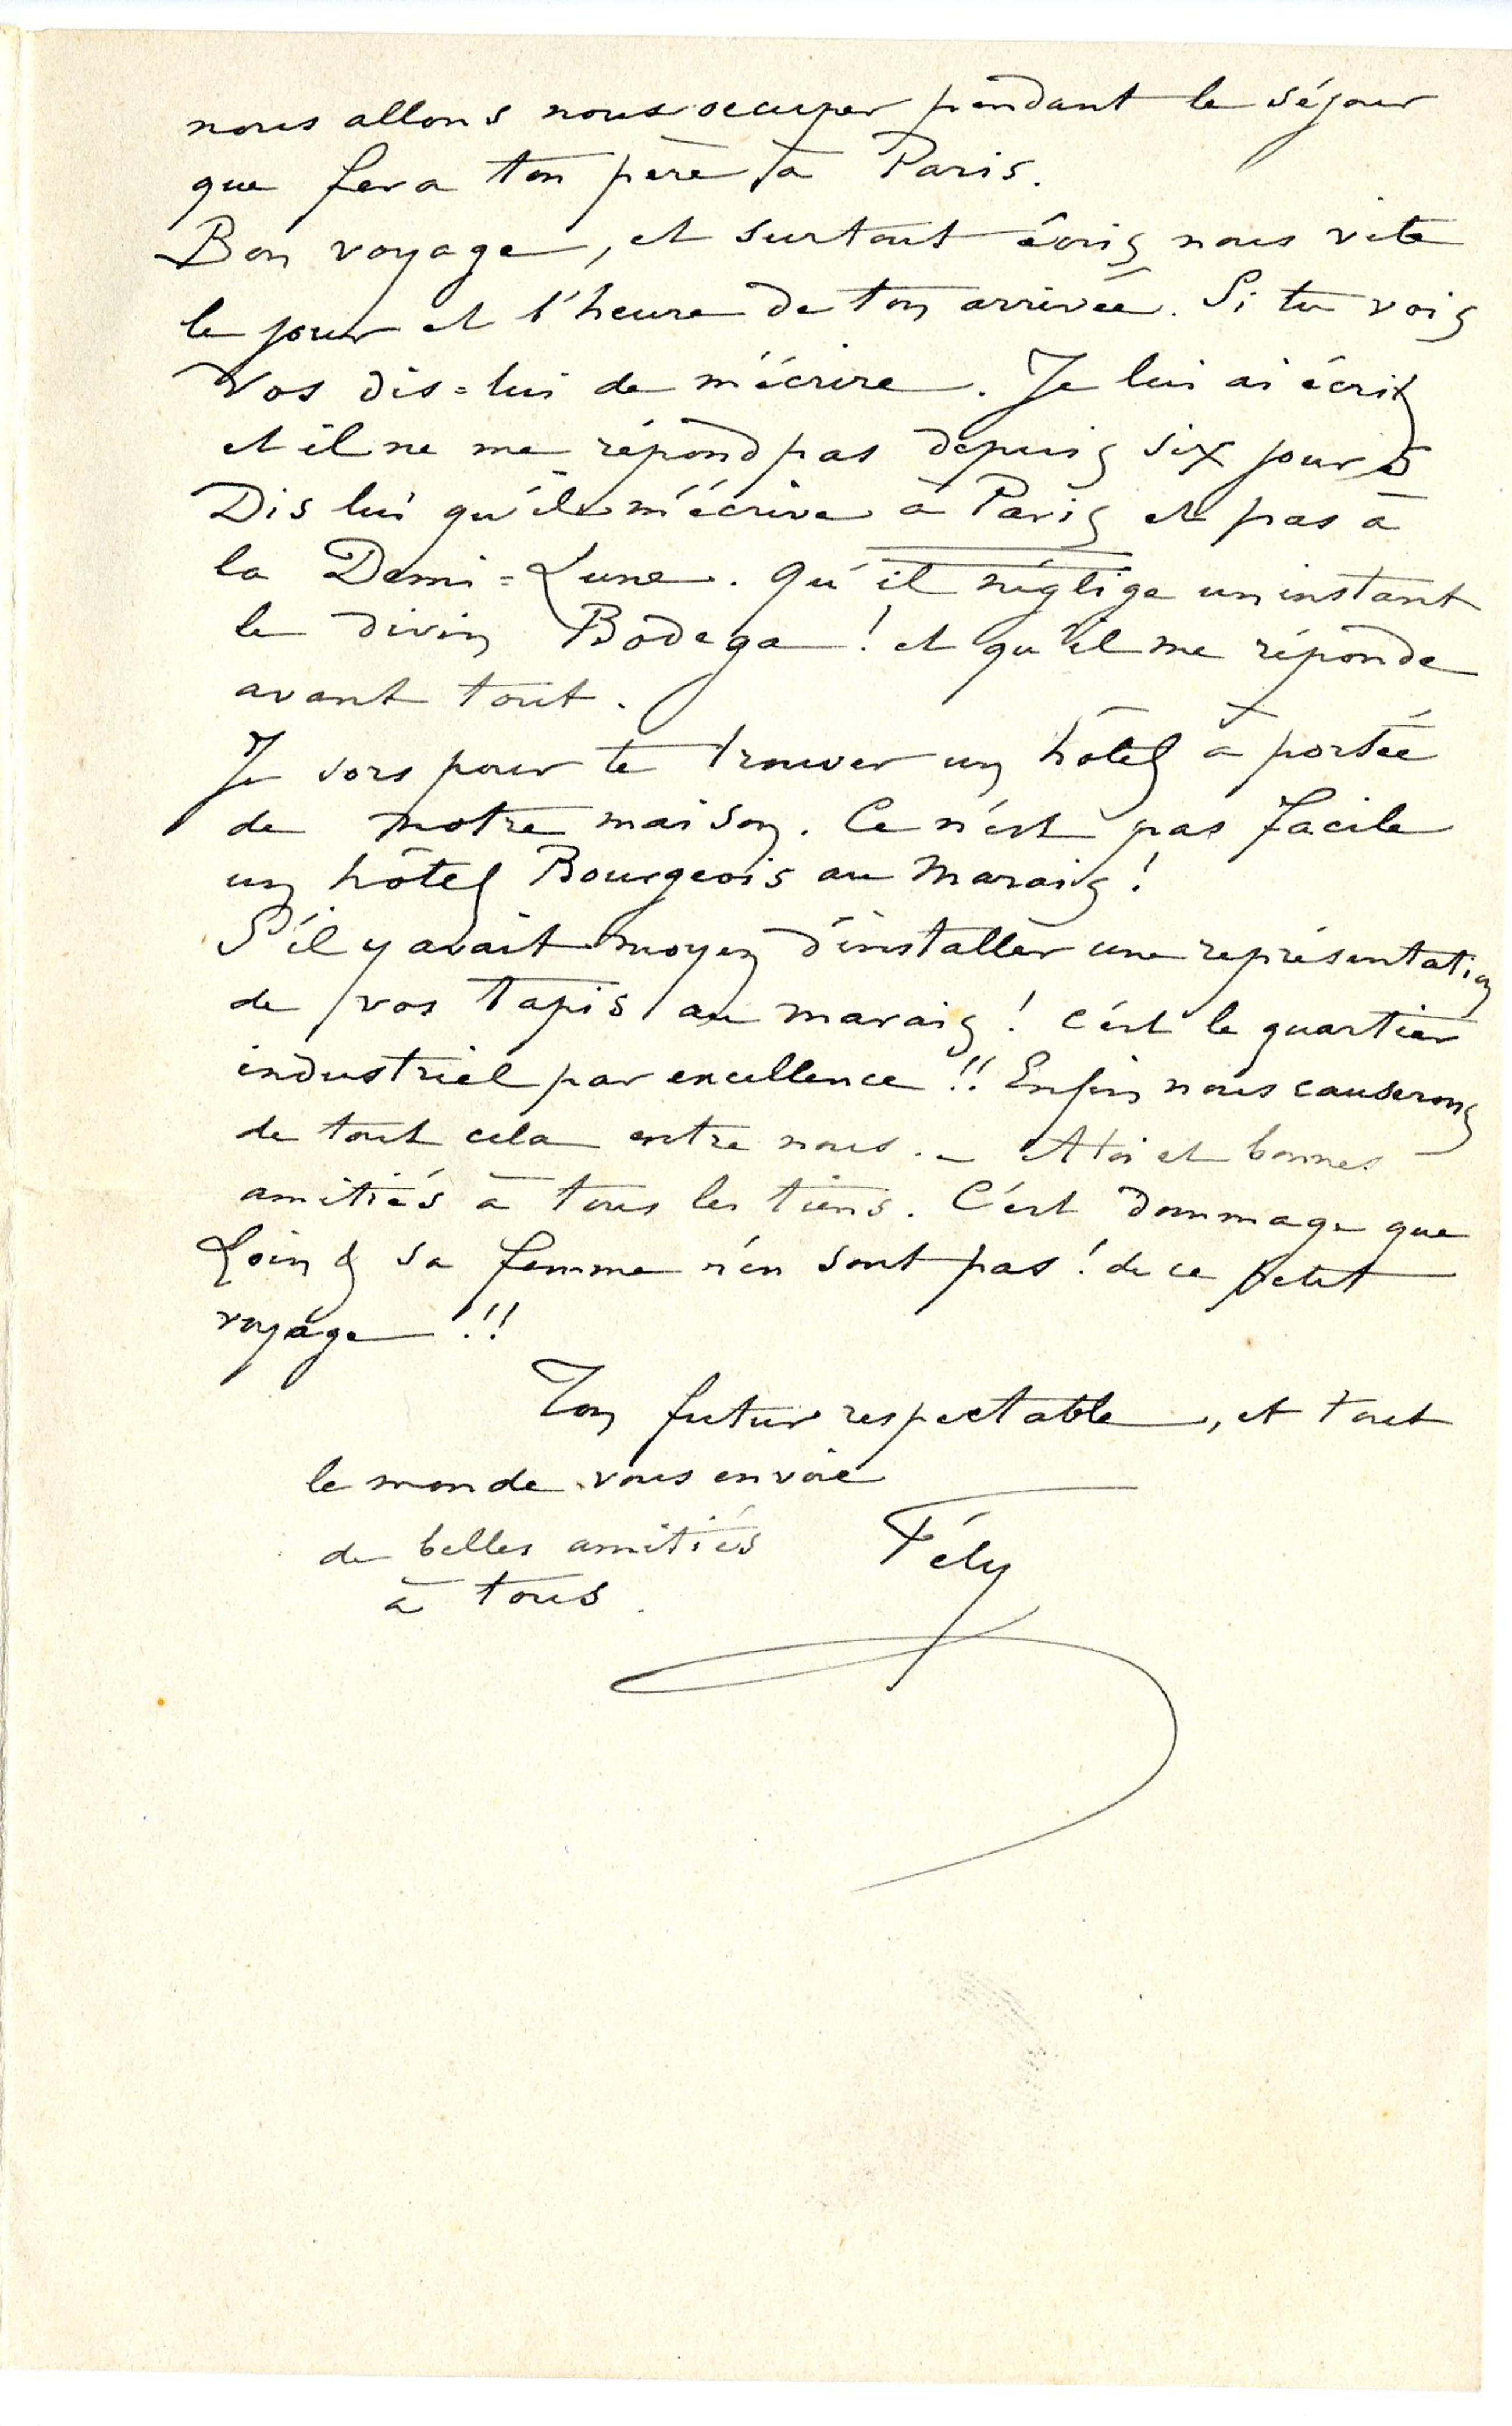 nous allons nous occuper pendant le séjour
que fera ton père à Paris.
Bon voyage, et surtout écris nous vite
le jour et l'heure de ton arrivée. Si tu vois
Vos dis=lui de m'écrire. Je lui ai écrit
et il ne me répond pas depuis six jours
Dis lui qu'il m'écrive à Paris et pas à
la Demi=Lune. Qu'il néglige un instant
le divin Bodega! et qu'il me réponde
avant tout.
Je sors pour te trouver un hôtel à portée
de notre maison. Ce n'est pas facile
un hôtel Bourgeois au Marais!
S'il y avait moyen d'installer une représentation
de vos Tapis au marais! c'est le quartier
industriel par excellence!! Enfin nous causerons
de tout cela entre nous. _ A toi et bonnes
amitiés à tous les tiens. C'est dommage que
& sa femme n'en sont pas! de ce petit
voyage!!
Ton futur respectable, et tout
le monde vous envoie
de belles amitiés Fély
à tous.